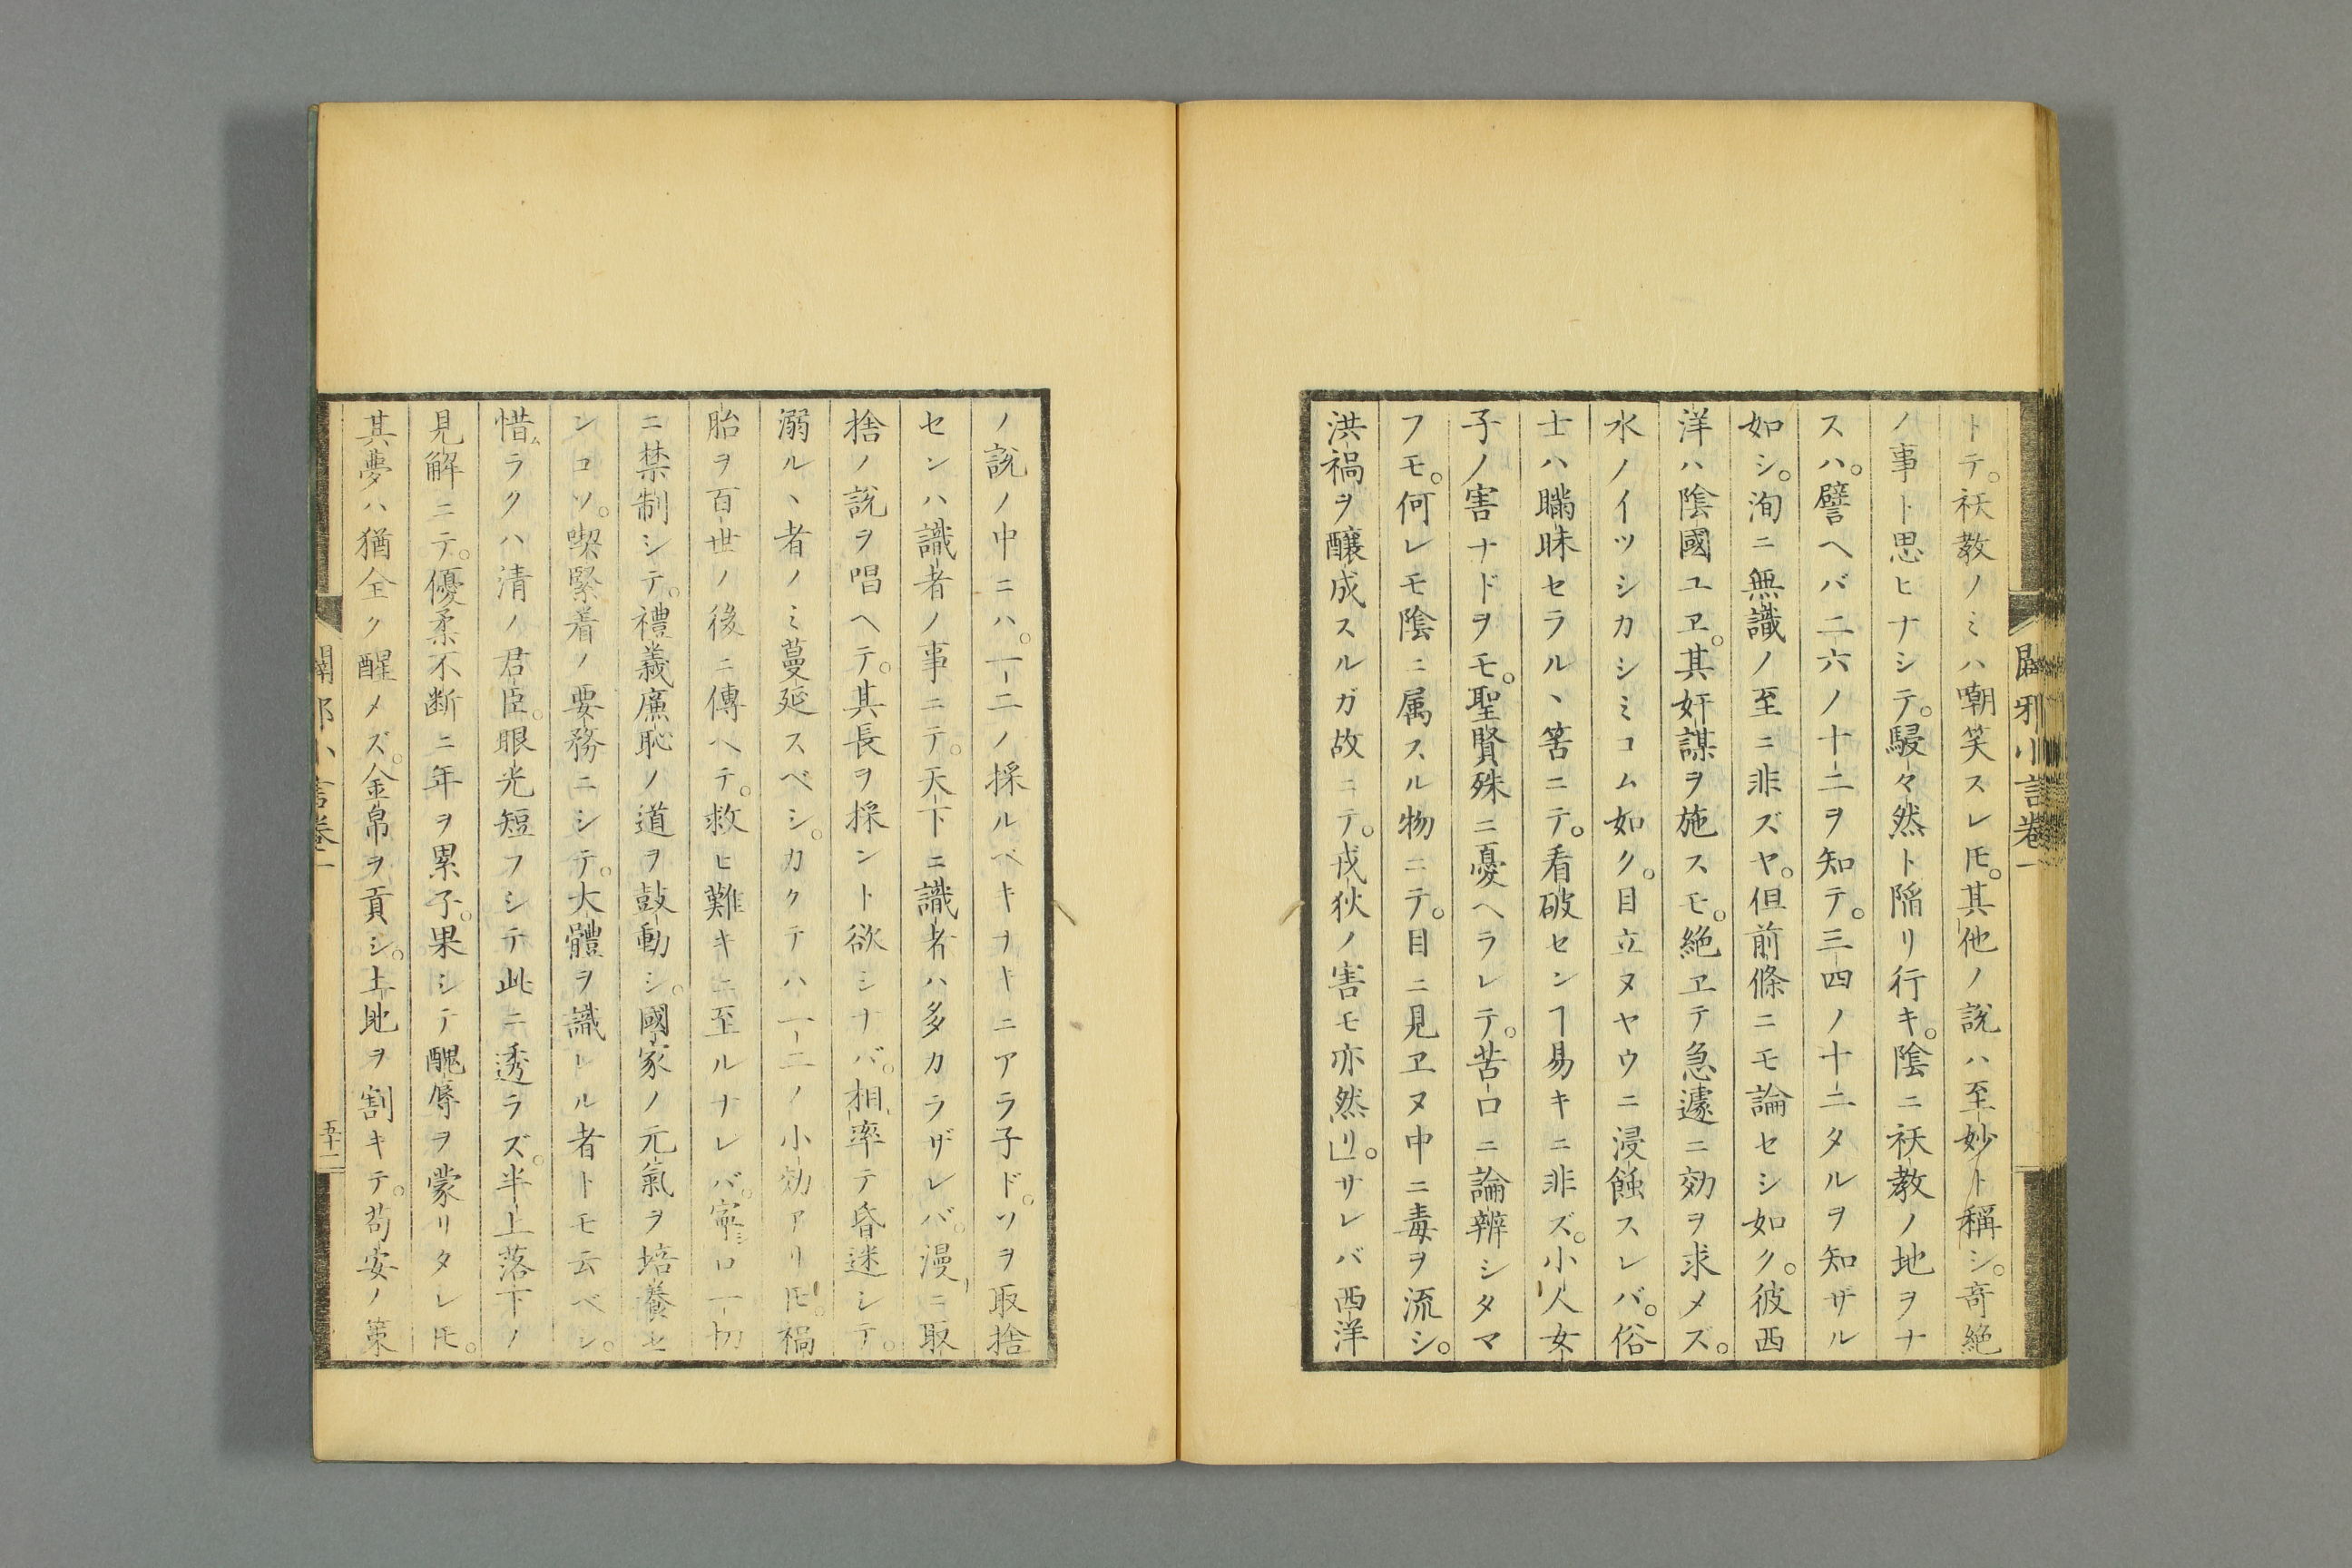 闢邪小言卷一
トテ。祅教ノミハ嘲笑スレ𪜈。其他ノ說ハ至妙ト稱シ。奇絶
ノ事ト思ヒナシテ。駸々然ト陷リ行キ。陰ニ祅教ノ地ヲナ
スハ。譬ヘバ二六ノ十二ヲ知テ。三四ノ十二タルヲ知ザル
如シ。洵ニ無識ノ至ニ非ズヤ。但前條ニモ論セシ如ク。彼西
洋ハ陰國ユヱ。其奸謀ヲ施スモ。絶ヱテ急遽ニ効ヲ求メズ。
水ノイツシカシミコム如ク。目立ヌヤウニ浸蝕スレバ。俗
士ハ矇昧セラルヽ筈ニテ。看破センヿ易キニ非ズ。小人女
子ノ害ナドヲモ。聖賢殊ニ憂ヘラレテ。苦口ニ論辨シタマ
フモ。何レモ陰ニ属スル物ニテ。目ニ見ヱヌ中ニ毒ヲ流シ。
洪禍ヲ釀成スルガ故ニテ。戎狄ノ害モ亦然リ」。サレバ西洋
ノ說ノ中ニハ。一二ノ採ルベキナキニアラ子ド。ソヲ取捨
センハ識者ノ事ニテ。天下ニ識者ハ多カラザレバ。漫ニ取
捨ノ說ヲ唱ヘテ。其長ヲ採ント欲シナバ。相率テ昏迷シテ。
溺ルヽ者ノミ蔓延スベシ。カクテハ一二ノ小効アリ𪜈。禍
胎ヲ百世ノ後ニ傳ヘテ。救ヒ難キニ至ルナレバ。寧ロ一切
ニ禁制シテ。禮義廉恥ノ道ヲ鼓動シ。國家ノ元氣ヲ培養セ
シコソ。喫緊着ノ要務ニシテ。大體ヲ識レル者トモ云ベシ。
惜ラクハ清ノ君臣。眼光短フシテ此ニ透ラズ。半上落下ノ
見解ニテ。優柔不断ニ年ヲ累子。果シテ醜辱ヲ蒙リタレ𪜈。
其夢ハ猶全ク醒メズ。金帛ヲ貢シ。土地ヲ割キテ。苟安ノ策
闢邪小言卷一
五十二